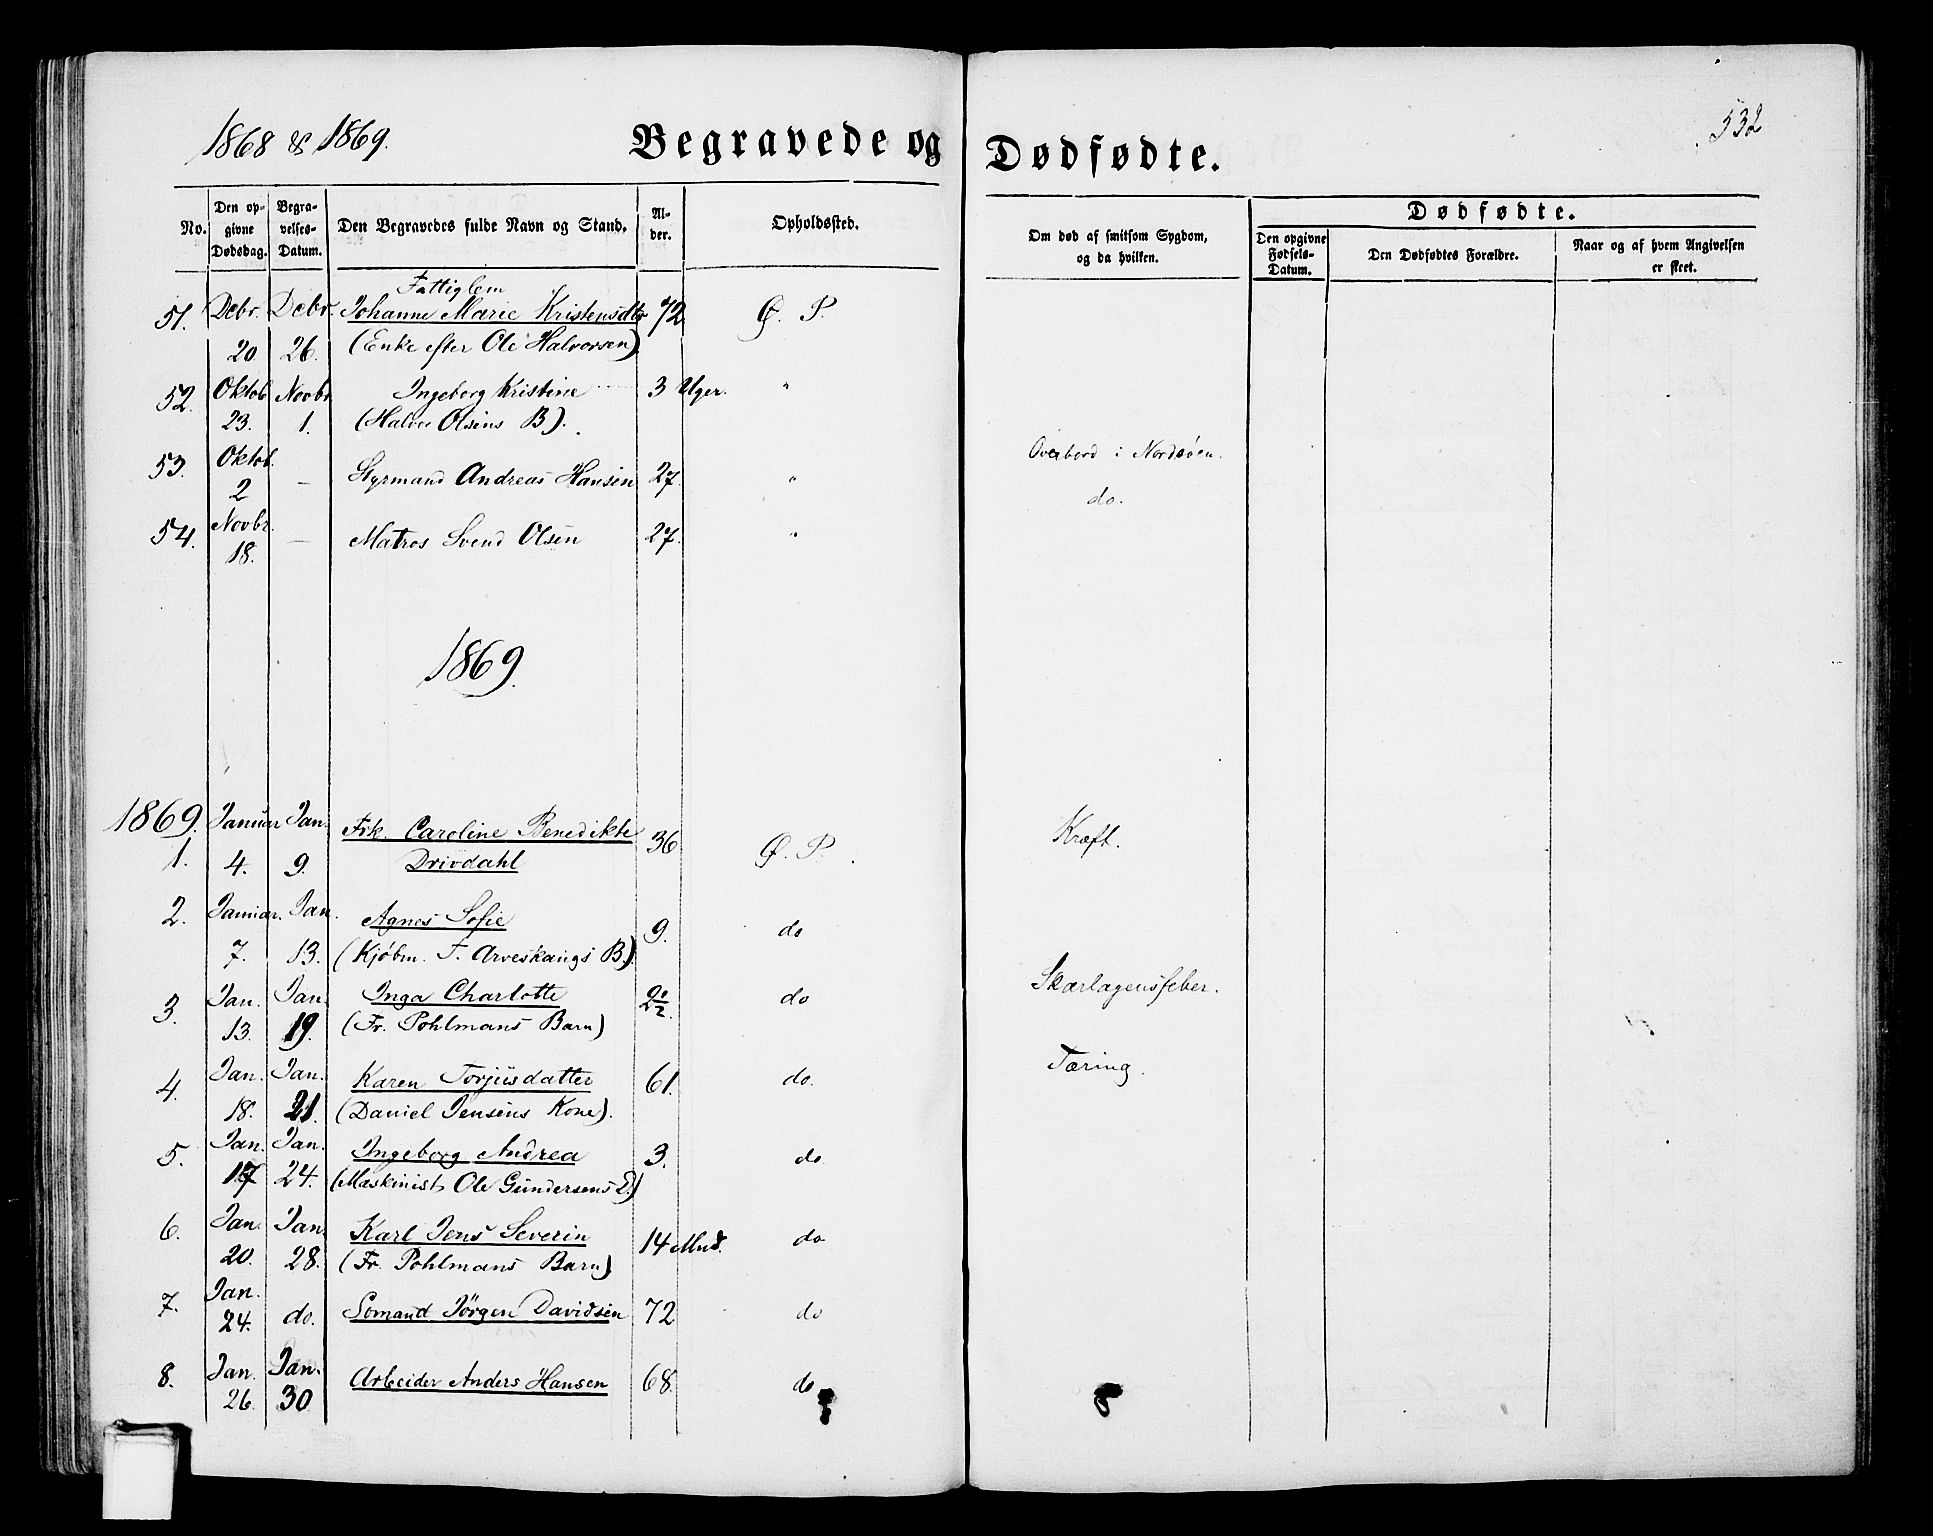 1868 & 1869.
Begravede og Dødfødte.
532
No.
Den opgivne Dødsdag.
Begravelses-Datum.
Den Begravedes fulde Navn og Stand.
Alder.
Opholdssted.
Om død af smitsom Sygdom, og da hvilken.
Dødfødte.
Den opgivne Fødsels-Datum.
Den Dødfødtes Forældre.
Naar og af hvem Angivelsen er skeet.
Fattiglem
51. Debr. Debr. Johanne Marie Kristensdtr 72 Ø. P.
20. 26. (Enke efter Ole Halvorsen)
52. Oktob. Novbr. Ingeborg Kristine 3 Uger. "
23. 1. (Halvor Olsens B).
53. Oktob. — Styrmand Andreas Hansen 27. " Overbord i Nordsøen.
2
54. Novbr. — Matros Svend Olsen 27. " do.
18.
1869.
1869.
1. Januar Jan. Frk. Caroline Benedikte 36 Ø. P. Kræft.
4. 9. Drivdahl
2. Januar. Jan. Agnes Sofie 9. do
7. 13. (Kjøbm. T. Arveskangs B.)
3. Jan. Jan. Inga Charlotte 2½. do Skarlagensfeber.
13. 19. (Fr. Pohlmans Barn)
4. Jan. Jan. Karen Torjusdatter 61. do. Tæring.
18. 21. (Daniel Jensens Kone).
5. Jan. Jan. Ingeborg Andrea 3. do
17 24. (Maskinist Ole Gundersens D.)
6. Jan. Jan. Karl Jens Severin 14 Mnd. do
20. 28. (Fr. Pohlmans Barn)
7. Jan. do. Sømand Jörgen Davidsen 72 do
24.
8. Jan. Jan. Arbeider Anders Hansen 68. do
26. 30